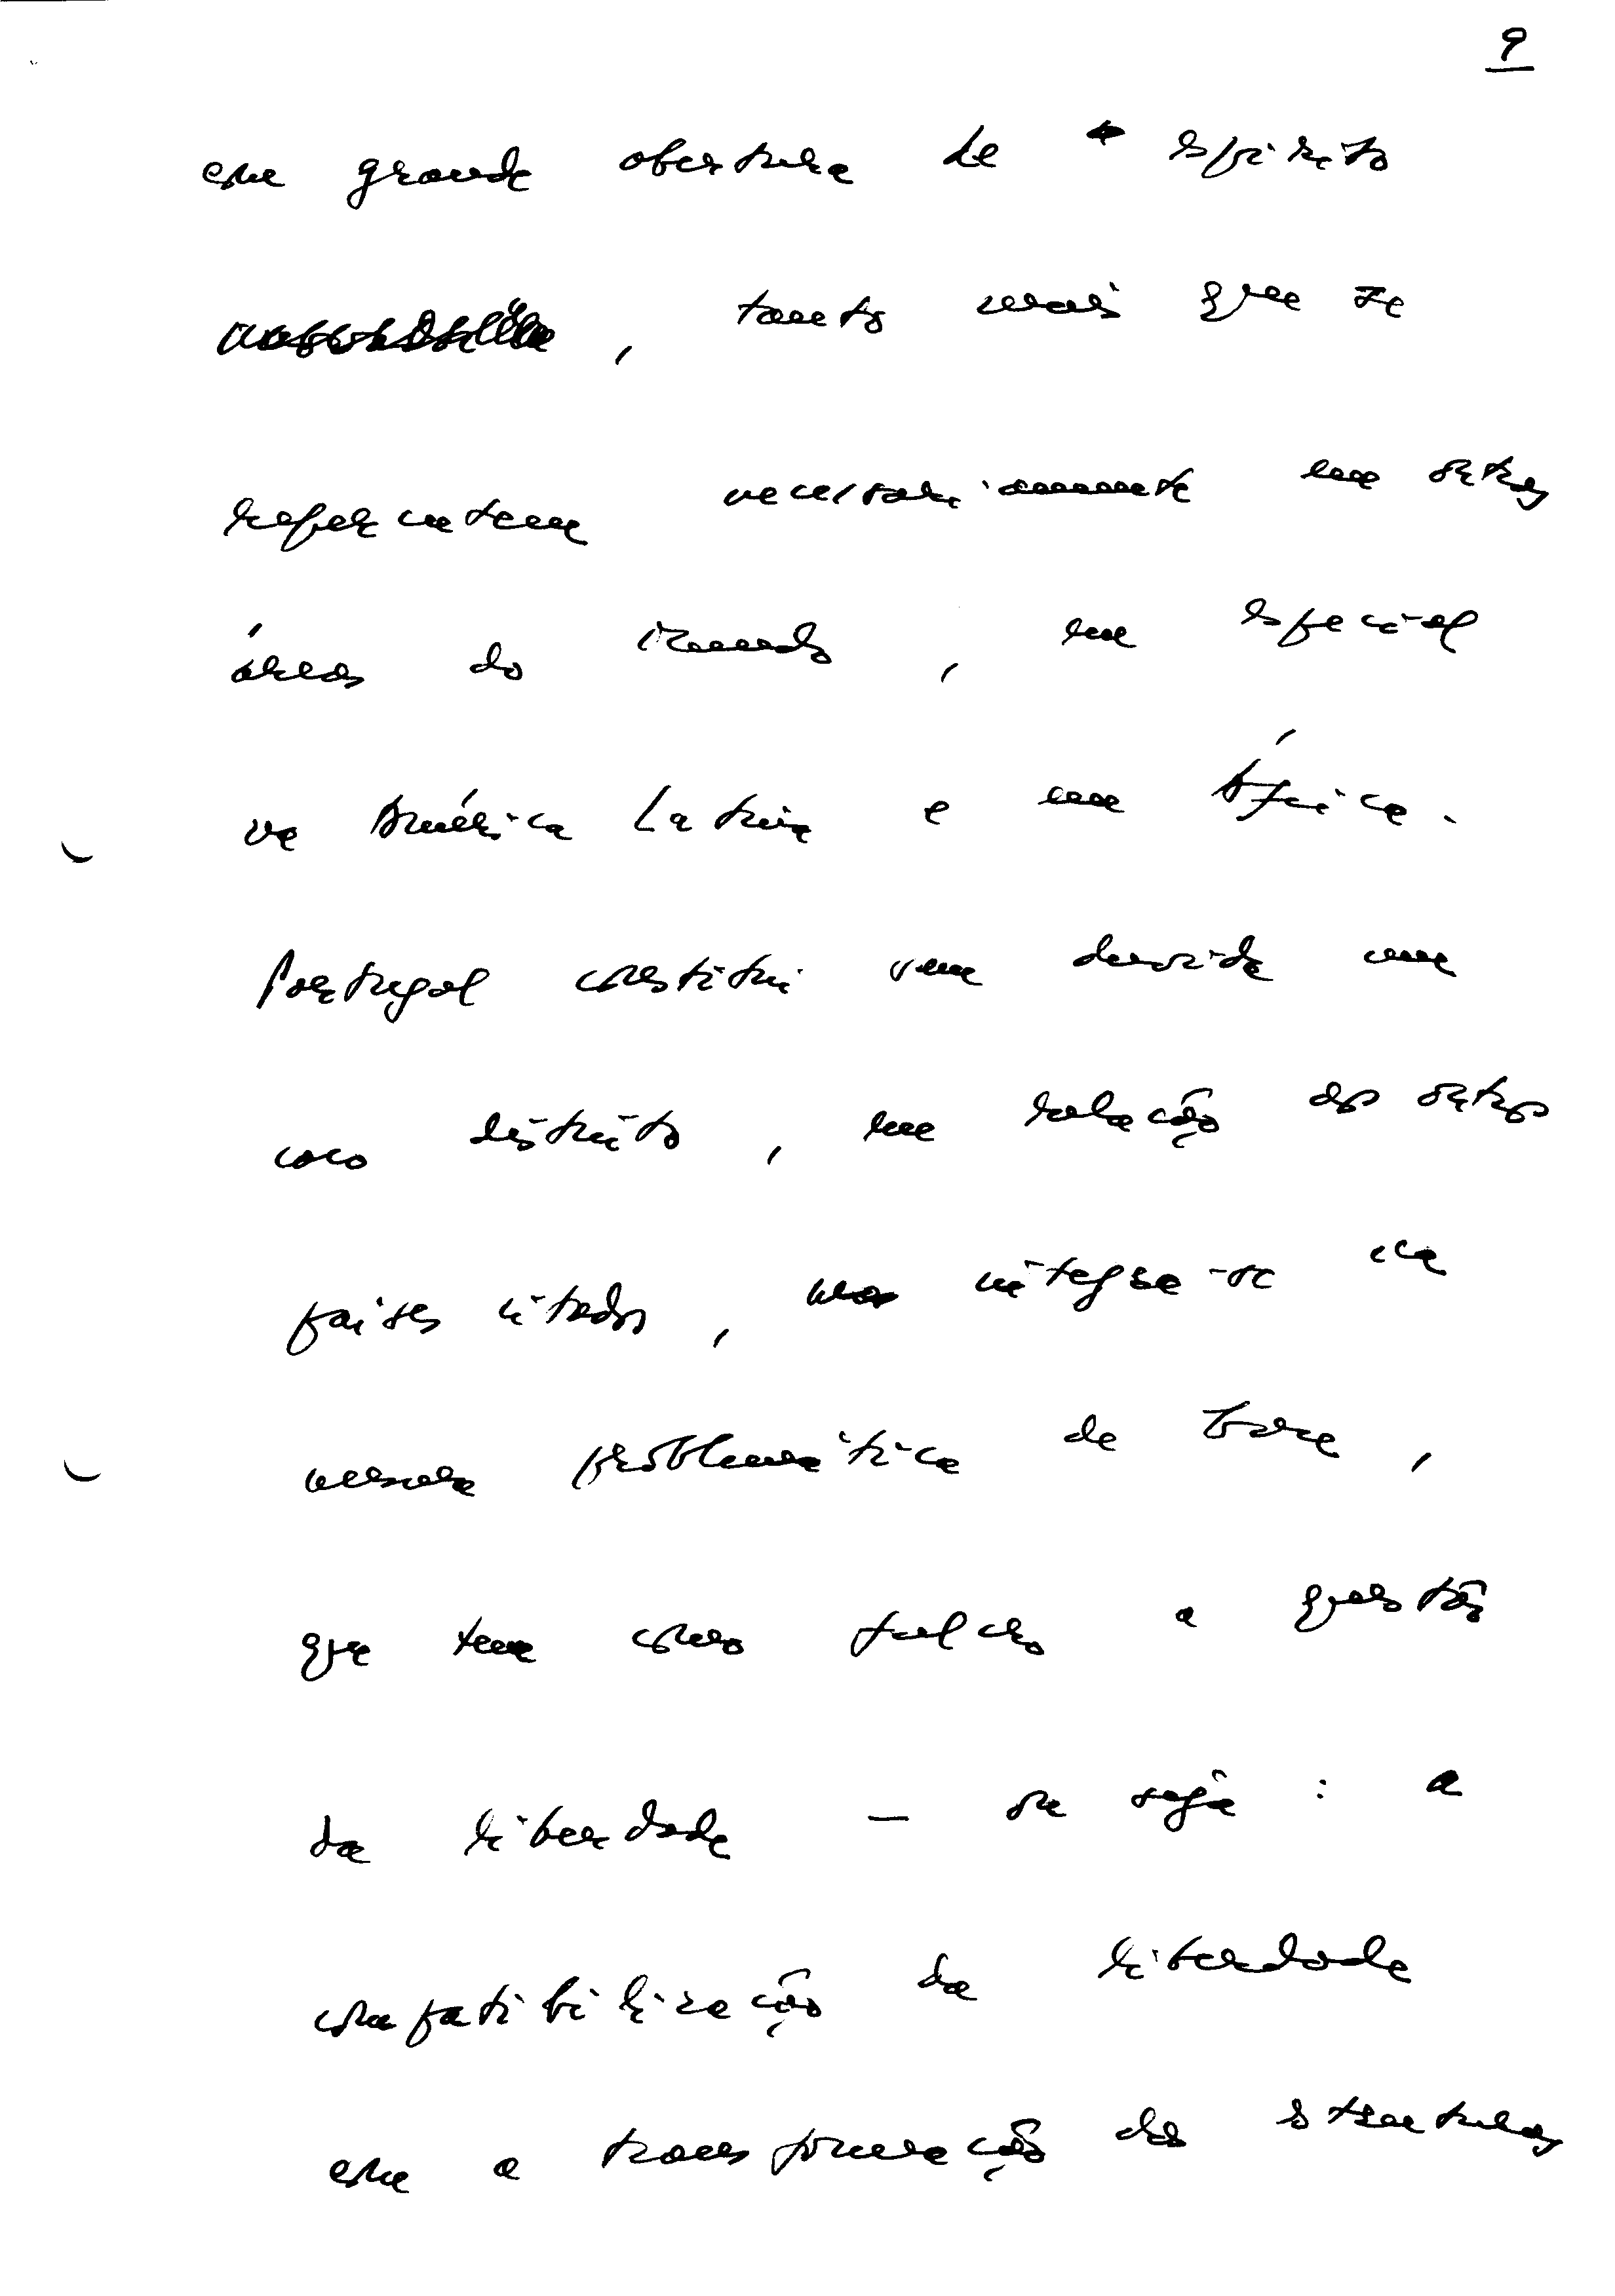 9
com grande abertura de espírito
, tanto mais que se
repercutem necessariamente em outras
áreas do mundo, em especial
na América Latina e em África.
Portugal constitui sem dúvida um
caso distinto, em relação aos outros
países citados, mas integra-se na
mesma problemática de base,
que tem como fulcro a questão
da liberdade — ou seja: a
compatibilização da liberdade
com a transformação das estruturas